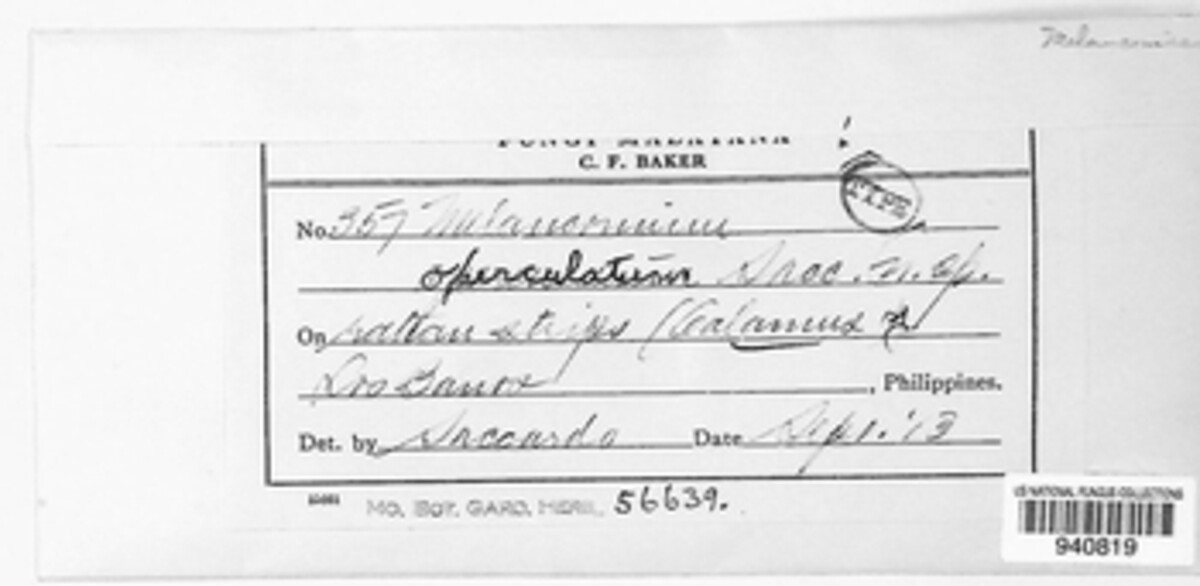 FUNGI MALAYANA
C. F. BAKER
TYPE
No. 357 Melanconium
operculatum Sacc. n. sp.
On rattan strips (Calamus
Los Banos, Philippines.
Det. by Saccardo Date Sept. '13
MO. BOT. GARD. HERB. 56639.
US NATIONAL FUNGUS COLLECTIONS
940819